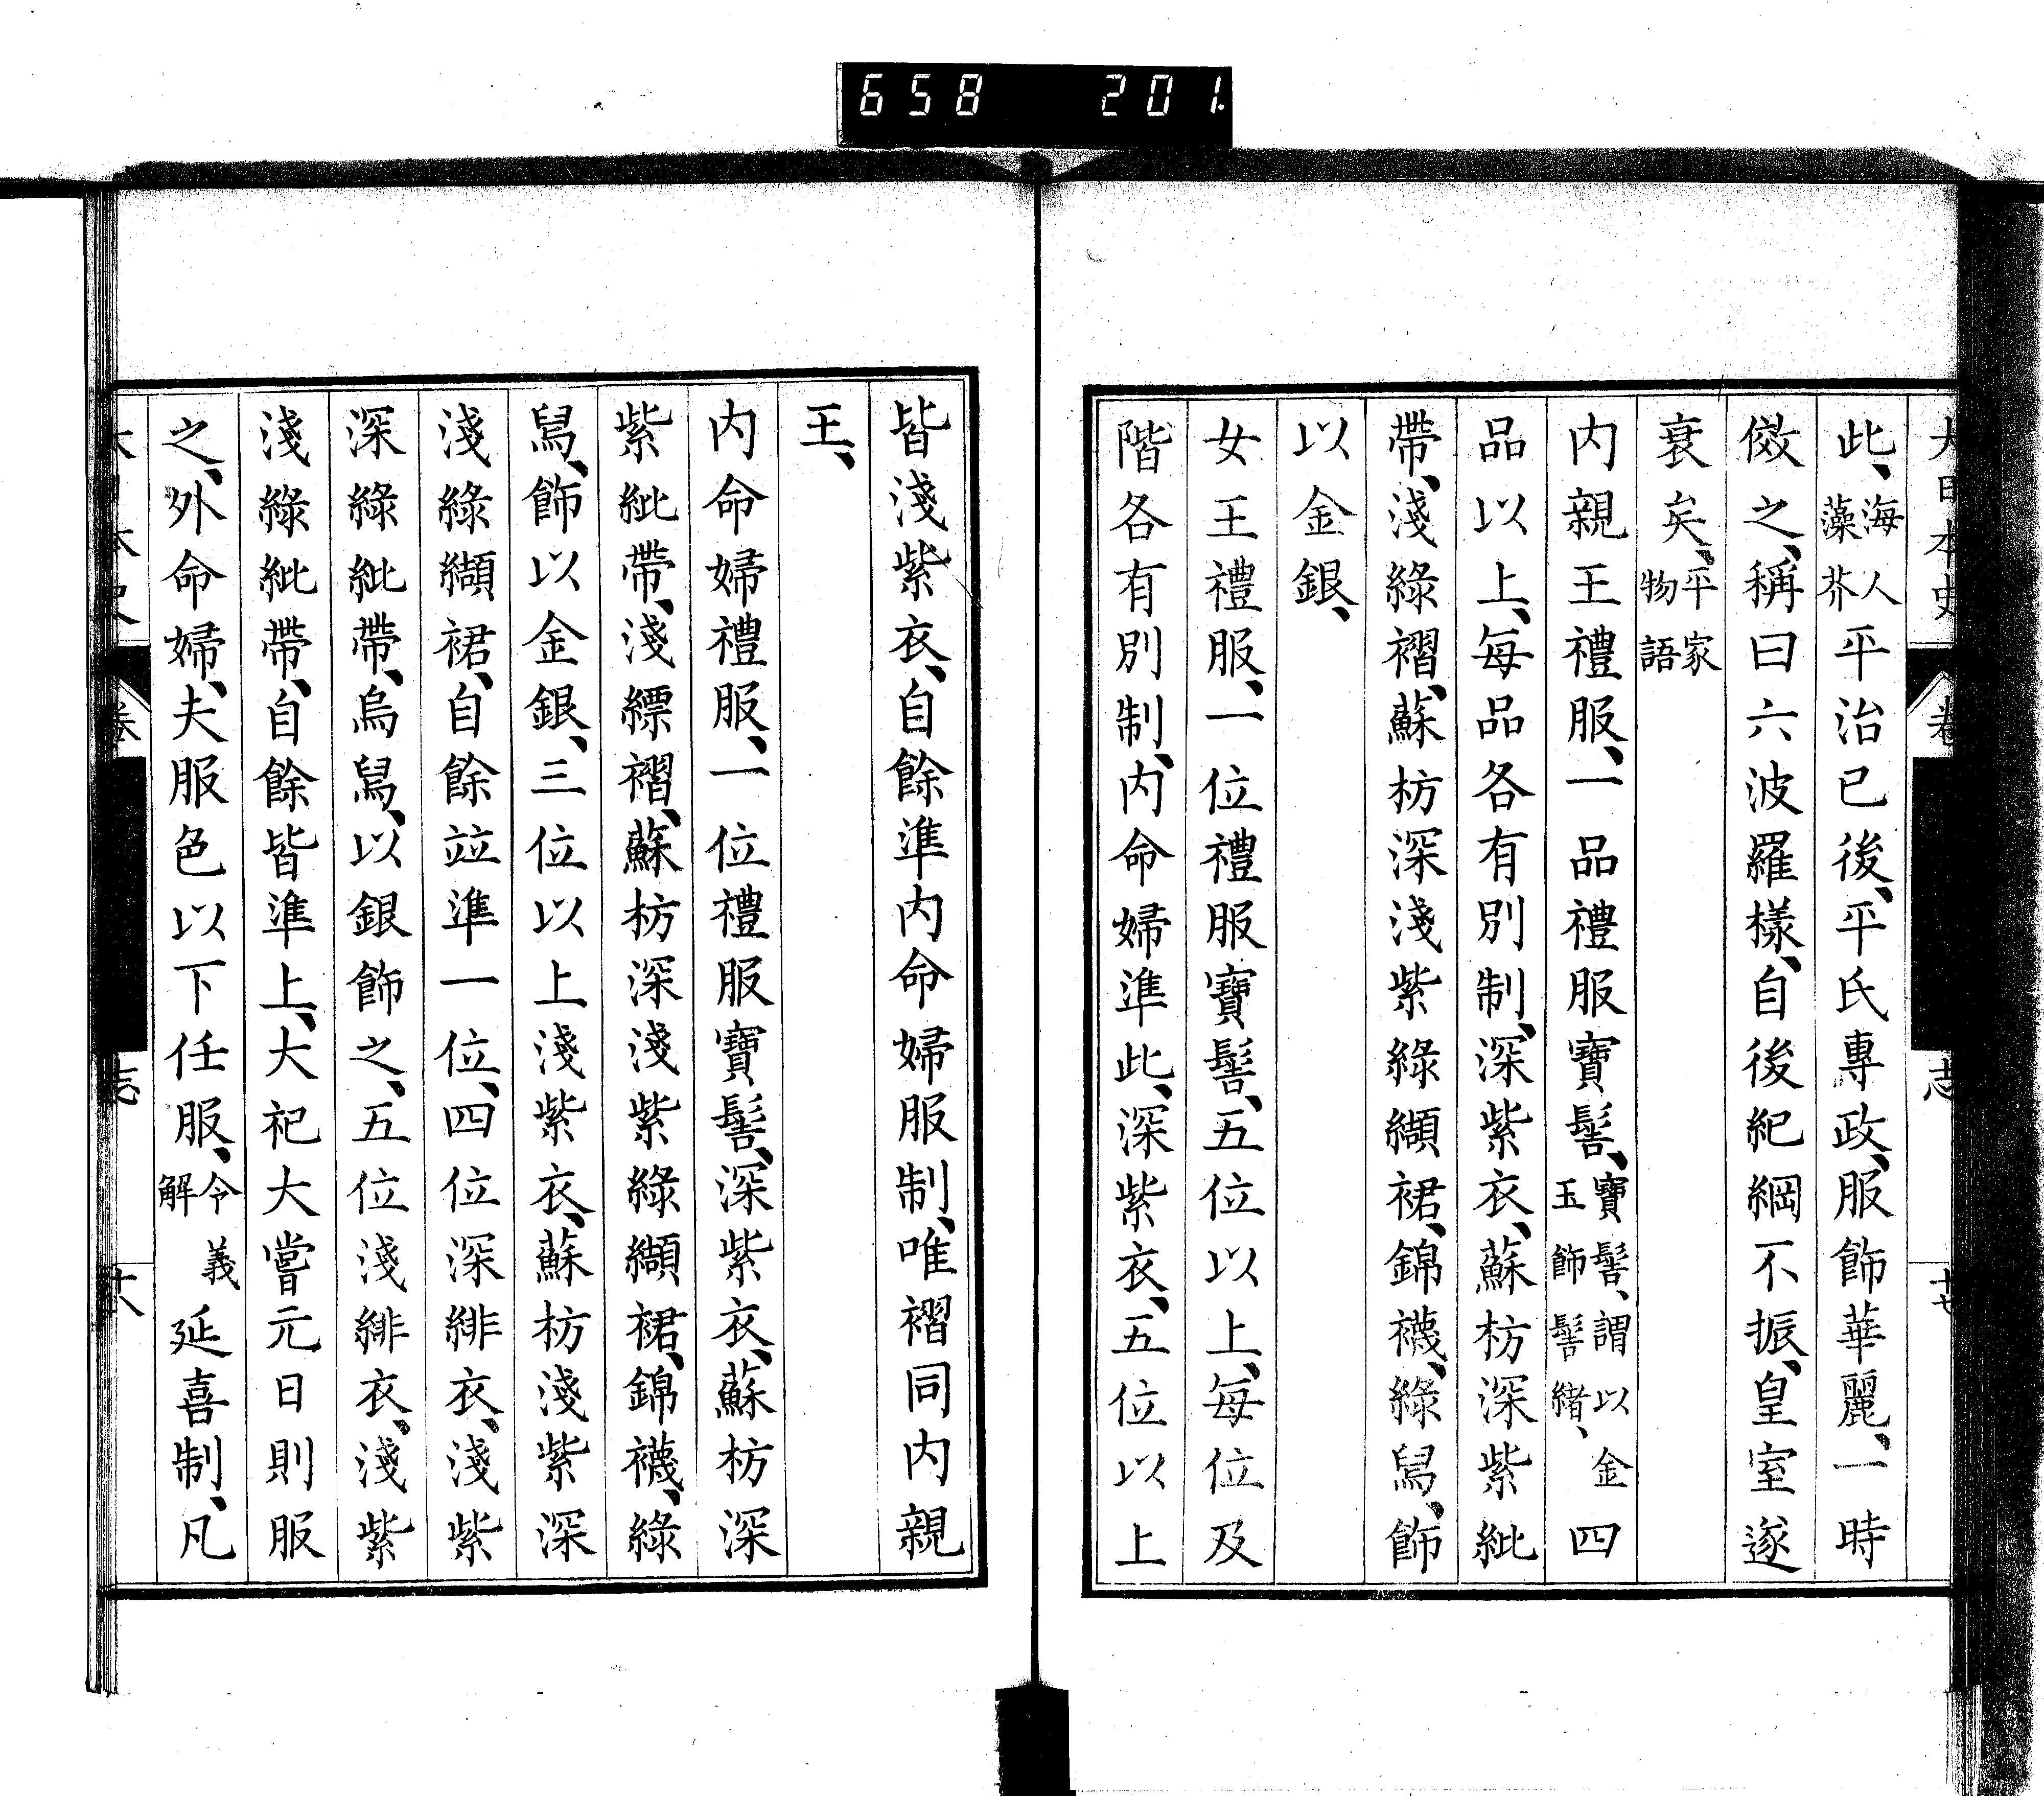 658 201.
大日本史 卷 志 十七
此、海人藻芥平治已後、平氏專政、服飾華麗、一時
傚之、稱曰六波羅樣、自後紀綱不振、皇室遂
衰矣、平家物語
内親王禮服、一品禮服寶髻、寶髻、謂以金玉飾髻緒、四
品以上、每品各有別制、深紫衣、蘇枋深紫紕
帶、淺綠褶、蘇枋深淺紫綠纈裙、錦襪、綠舄、飾
以金銀、
女王禮服、一位禮服寶髻、五位以上、每位及
階各有別制、内命婦準此、深紫衣、五位以上
皆淺紫衣、自餘準内命婦服制、唯褶同内親
王、
内命婦禮服、一位禮服寶髻、深紫衣、蘇枋深
紫紕帶、淺縹褶、蘇枋深淺紫綠纈裙、錦襪、綠
舄、飾以金銀、三位以上淺紫衣、蘇枋淺紫深
淺綠纈裙、自餘竝準一位、四位深緋衣、淺紫
深綠紕帶、烏舄、以銀飾之、五位淺緋衣、淺紫
淺綠紕帶、自餘皆準上、大祀大嘗元日則服
之、外命婦、夫服色以下任服、令義解延喜制、凡
大日本史 卷 志 十八